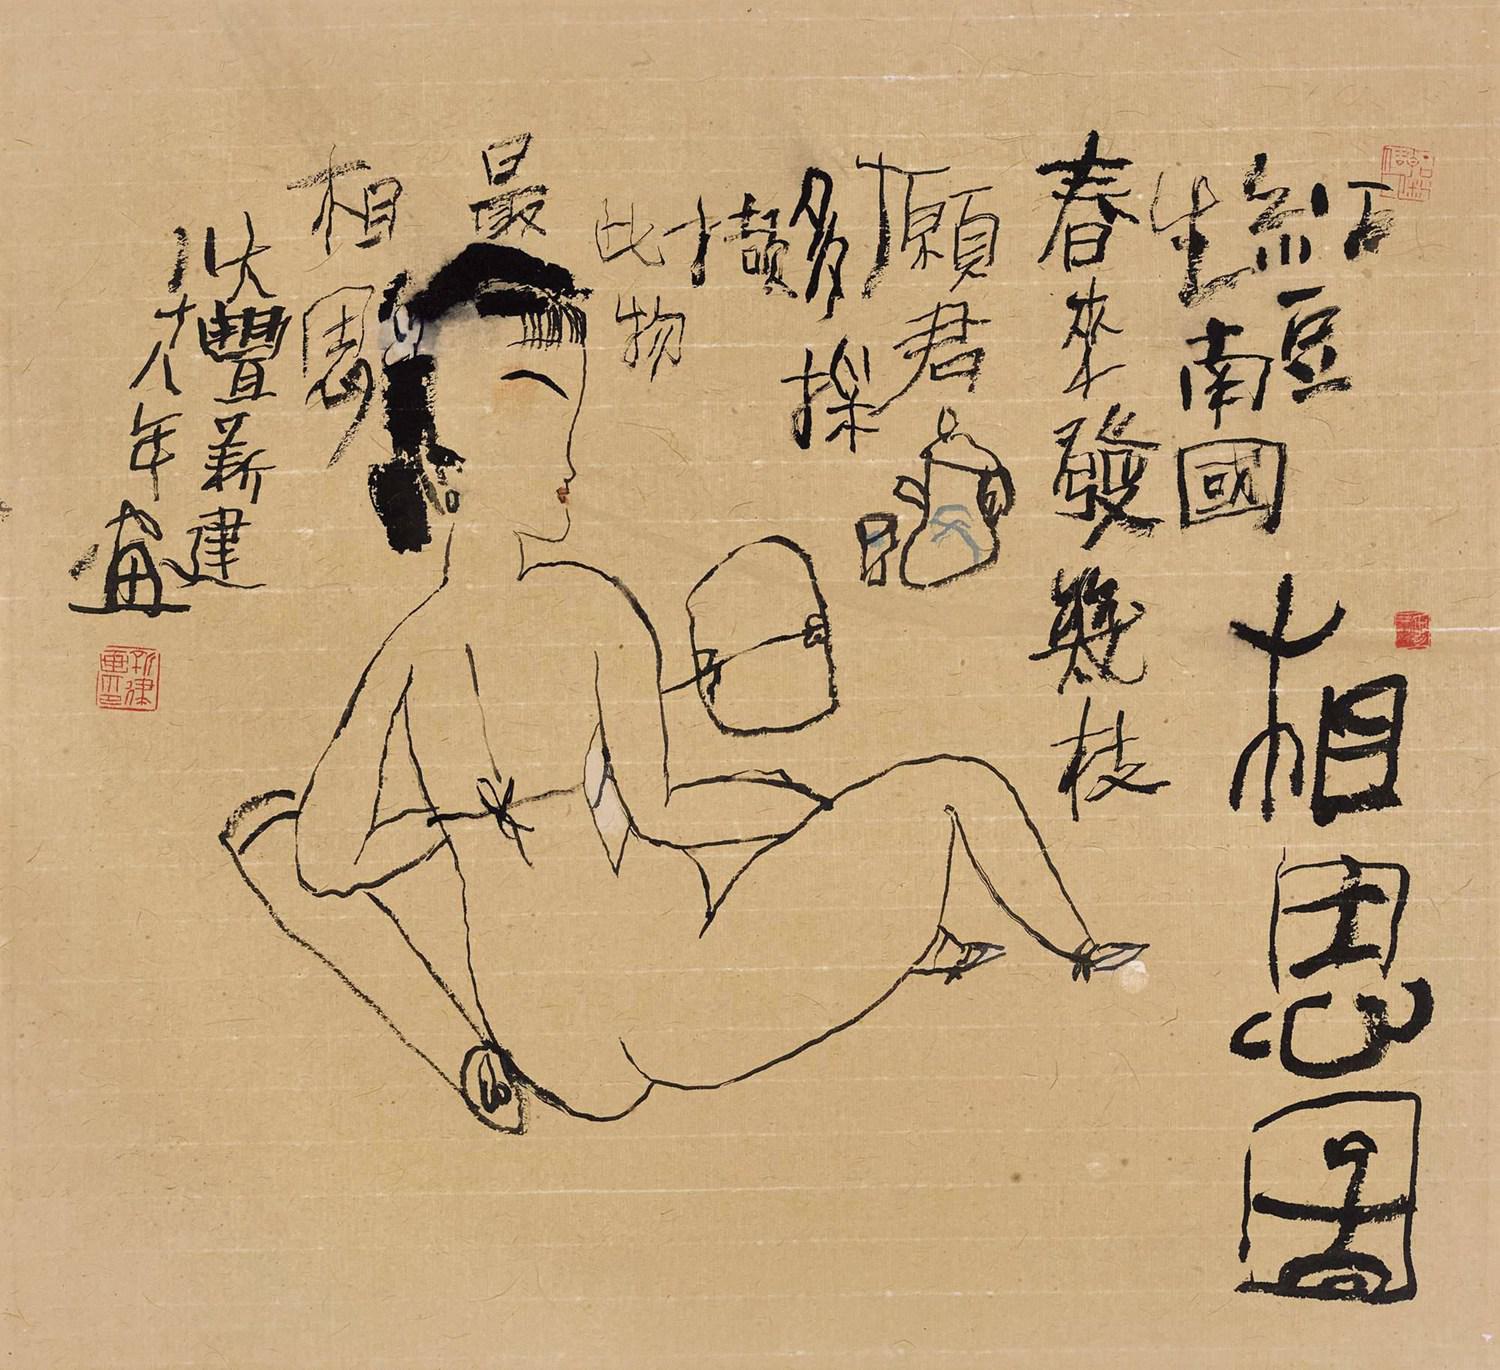 相思圖
紅豆
生南國
春來發幾枝
願君
多採
擷
此物
最
相思
大豐新建
年畫
新建畫印